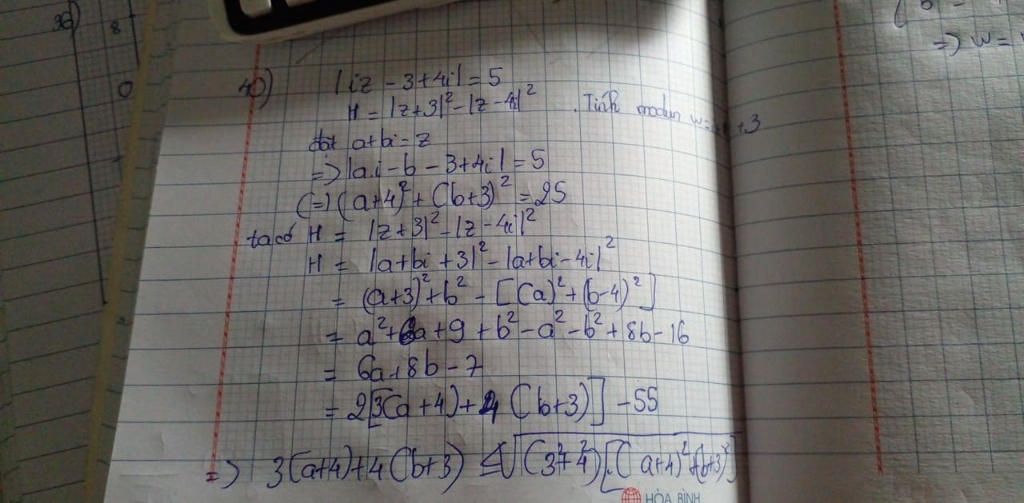 36)
8
0
40) |iz - 3 + 4i| = 5
H = |z+3|² - |z - 4i|² . Tính modun w = +3
đặt a+bi = z
=> |a.i - b - 3 + 4i| = 5
(=) (a+4)² + (b+3)² = 25
ta có H = |z+3|² - |z - 4i|²
H = |a+bi+3|² - |a+bi - 4i|²
= (a+3)² + b² - [(a)² + (b-4)²]
= a² + 6a + 9 + b² - a² - b² + 8b - 16
= 6a + 8b - 7
= 2[3(a+4) + 4(b+3)] - 55
=> 3(a+4) + 4(b+3) ≤ √(3²+4²)[(a+4)²+(b+3)²]
HÒA BÌNH
=> w =